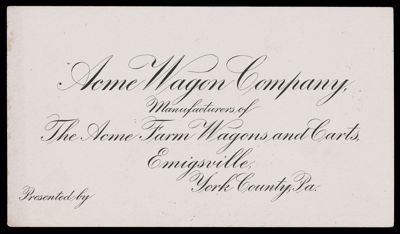 Acme Wagon Company,
Manufacturers, of
The Acme Farm Wagons, and Carts,
Emigsville,
York County, Pa.
Presented by